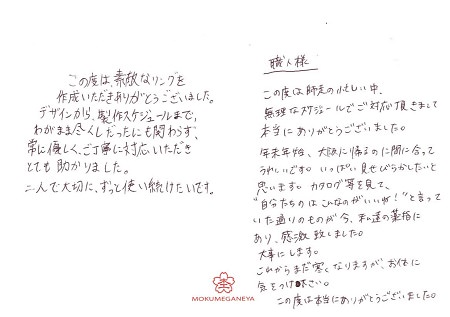 この度は、素敵なリングを
作成いただきありがとうございました。
デザインから、製作スケジュールまで、
わがまま尽くしだったにも関わらず、
常に優しく、ご丁寧に対応いただき
とても助かりました。
二人で大切に、ずっと使い続けたいです。
職人様
この度は師走の忙しい中、
無理なスケジュールでご対応頂きまして
本当にありがとうございました。
年末年始、大阪に帰るのに間に合って
うれしいです。いっぱい見せびらかしたいと
思います。カタログ等を見て、
"自分たちのはこんなのがいいが!"と言って
いた通りのものが今、私達の薬指に
あり、感激致しました。
大事にします。
これからまだ寒くなりますが、お体に
気をつけ下さい。
この度は本当にありがとうございました。
MOKUMEGANEYA